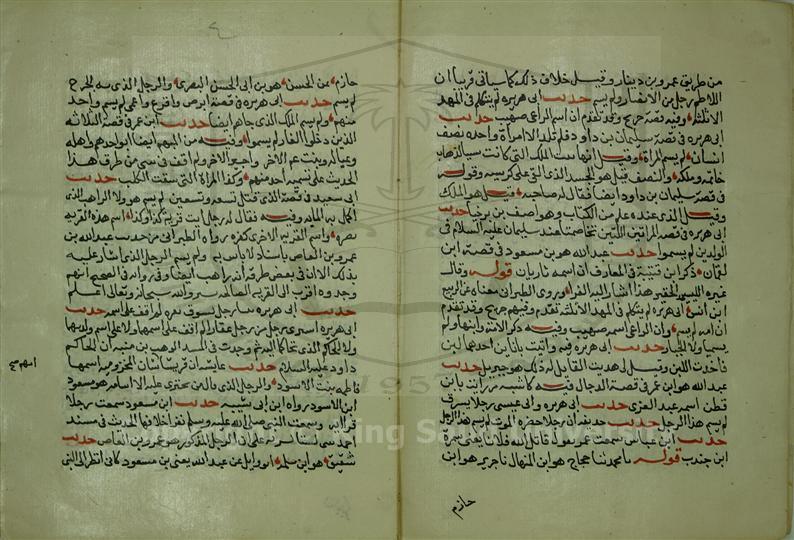 من طريق عمرو بن دينار وقيل خلاف ذلك كما سيأتي قريبا ان
اللاطم رجل من الانصار ولم يسم حديث ابي هريرة لم يتكلم في المهد
الا ثلثة وفيه قصة جريج وقد تقدم ان اسم الراعي صهيب حديث
ابي هريره في قصة سليمان بن داود فلم تلد الا امراة واحده نصف
انسان لم يسم المراة وقيل انها بنت الملك التي كانت سبب
خاتمه وملكه والنصف قيل هو الجسد الذي القي على كرسيه وقوله
في قصة سليمان بن داود ايضا فقال له صاحبه قيل هو الملك
وقيل الذي عنده علم من الكتاب وهو اصف بن برخيا حديث
ابي هريره في قصة المراتين اللتين تحاصمتا عند سليمان عليه السلام في
الولدين لم يسموا حديث عبد الله هو بن مسعود في قصة ابن
لقمان ذكر ابن قتيبة في المعارف ان اسمه ثاران قوله وقال
غيره النسي الحقير هذا اشار اليه الفرا وروى الطبراني معناه عن الربيع
ابن انس ابي هريره لم يتكلم في المهد الا ثلثة تقدم وفيهم جريج وقد تقدم
ان امه لم يسم وان الراعي اسمه صهيب وفيه ذكر الامة وابنها ولم
يسميا ولا الجبار حديث ابي هريره قيم وانيت بانا بن احديهما لبن
فاخذت اللبن وقيل لي هديت القايل له ذلك هو جبريل حديث
عبد الله هو ابن عمر في قصة الدجال فيه كاشبه من رايت بابن
قطن اسمه عبد العزى حديث ابي هريره راى عيسى رجلا يسرق
لم يسم هذا الرجل حديث حذيفه ان رجلا حضره الموت لم يسم هذا الرجل
حديث ابن عباس سمعت عمر يقول قاتل الله فلانا يعني سمرة
ابن جندب قوله نا محمد نا حجاج هو ابن المنهال نا جرير هو ابن
حازم
حازم عن الحسن هو بن ابي الحسن البصري والرجل الذي به الجرح
لم يسم حديث ابي هريره في قصة ابرص واقرع واعمى لم يسم واحد
منهم ولم يسم الملك الذي جاهم ايضا حديث ابن عمر في قصة الثلاثه
الذين دخلوا الغار لم يسموا وفيه من المبهم ايضا ابوا احدهم واهله
وعياله وبنت عم الاخر واجير الاخر ولم اقف في شي من طرق هذا
الحديث على تسمية احد منهم وكذا المراة التي سقت الكلب حديث
ابي سعيد في قصة الذي قتل تسعه وتسعين لم يسم هو ولا الراهب الذي
اكمل به المايه وفيه فقال له رجل ايت قرية كذا وكذا اسم هذه القرية
نصره واسم القرية الاخرى كفره رواه الطبراني من حديث عبد الله بن
عمرو بن العاص باسناد لا باس به ولم يسم الرجل الذي اشار عليه
بذلك الا ان في بعض طرقه انه راهب ايضا وفي رواية في الصحيح انهم
وجدوه اقرب الى القرية الصالحه بشبر والله سبحانه وتعالى اعلم
حديث ابي هريره بينا رجل يسوق بقره لم اقف على اسمه حديث
ابي هريره اشترى رجل من رجل عقارا لم اقف على اسمهما ولا على اسم ولديهما
ولا الحاكم الذي تحاكما اليه ثم وجدت في المبتدا لوهب بن منبه ان الحاكم
داود عليه السلام حديث عايشه ان قريشا شان المخزوميه اسمها
فاطمه بنت الاسود والرجل الذي قالت من يجترى عليه الا اسامه هو مسعود
ابن الاسود رواه ابن ابي شيبة حديث ابن مسعود سمعت رجلا
قرا اية وسمعت النبي صلى الله عليه وسلم يقرا خلافها الحديث في مسند
احمد شي يستانس به على ان الرجل المذكور هو عمرو بن العاص حديث
شقيق هو ابن سلمه ابو وايل عن عبد الله يعني بن مسعود كاني انظر الى النبي